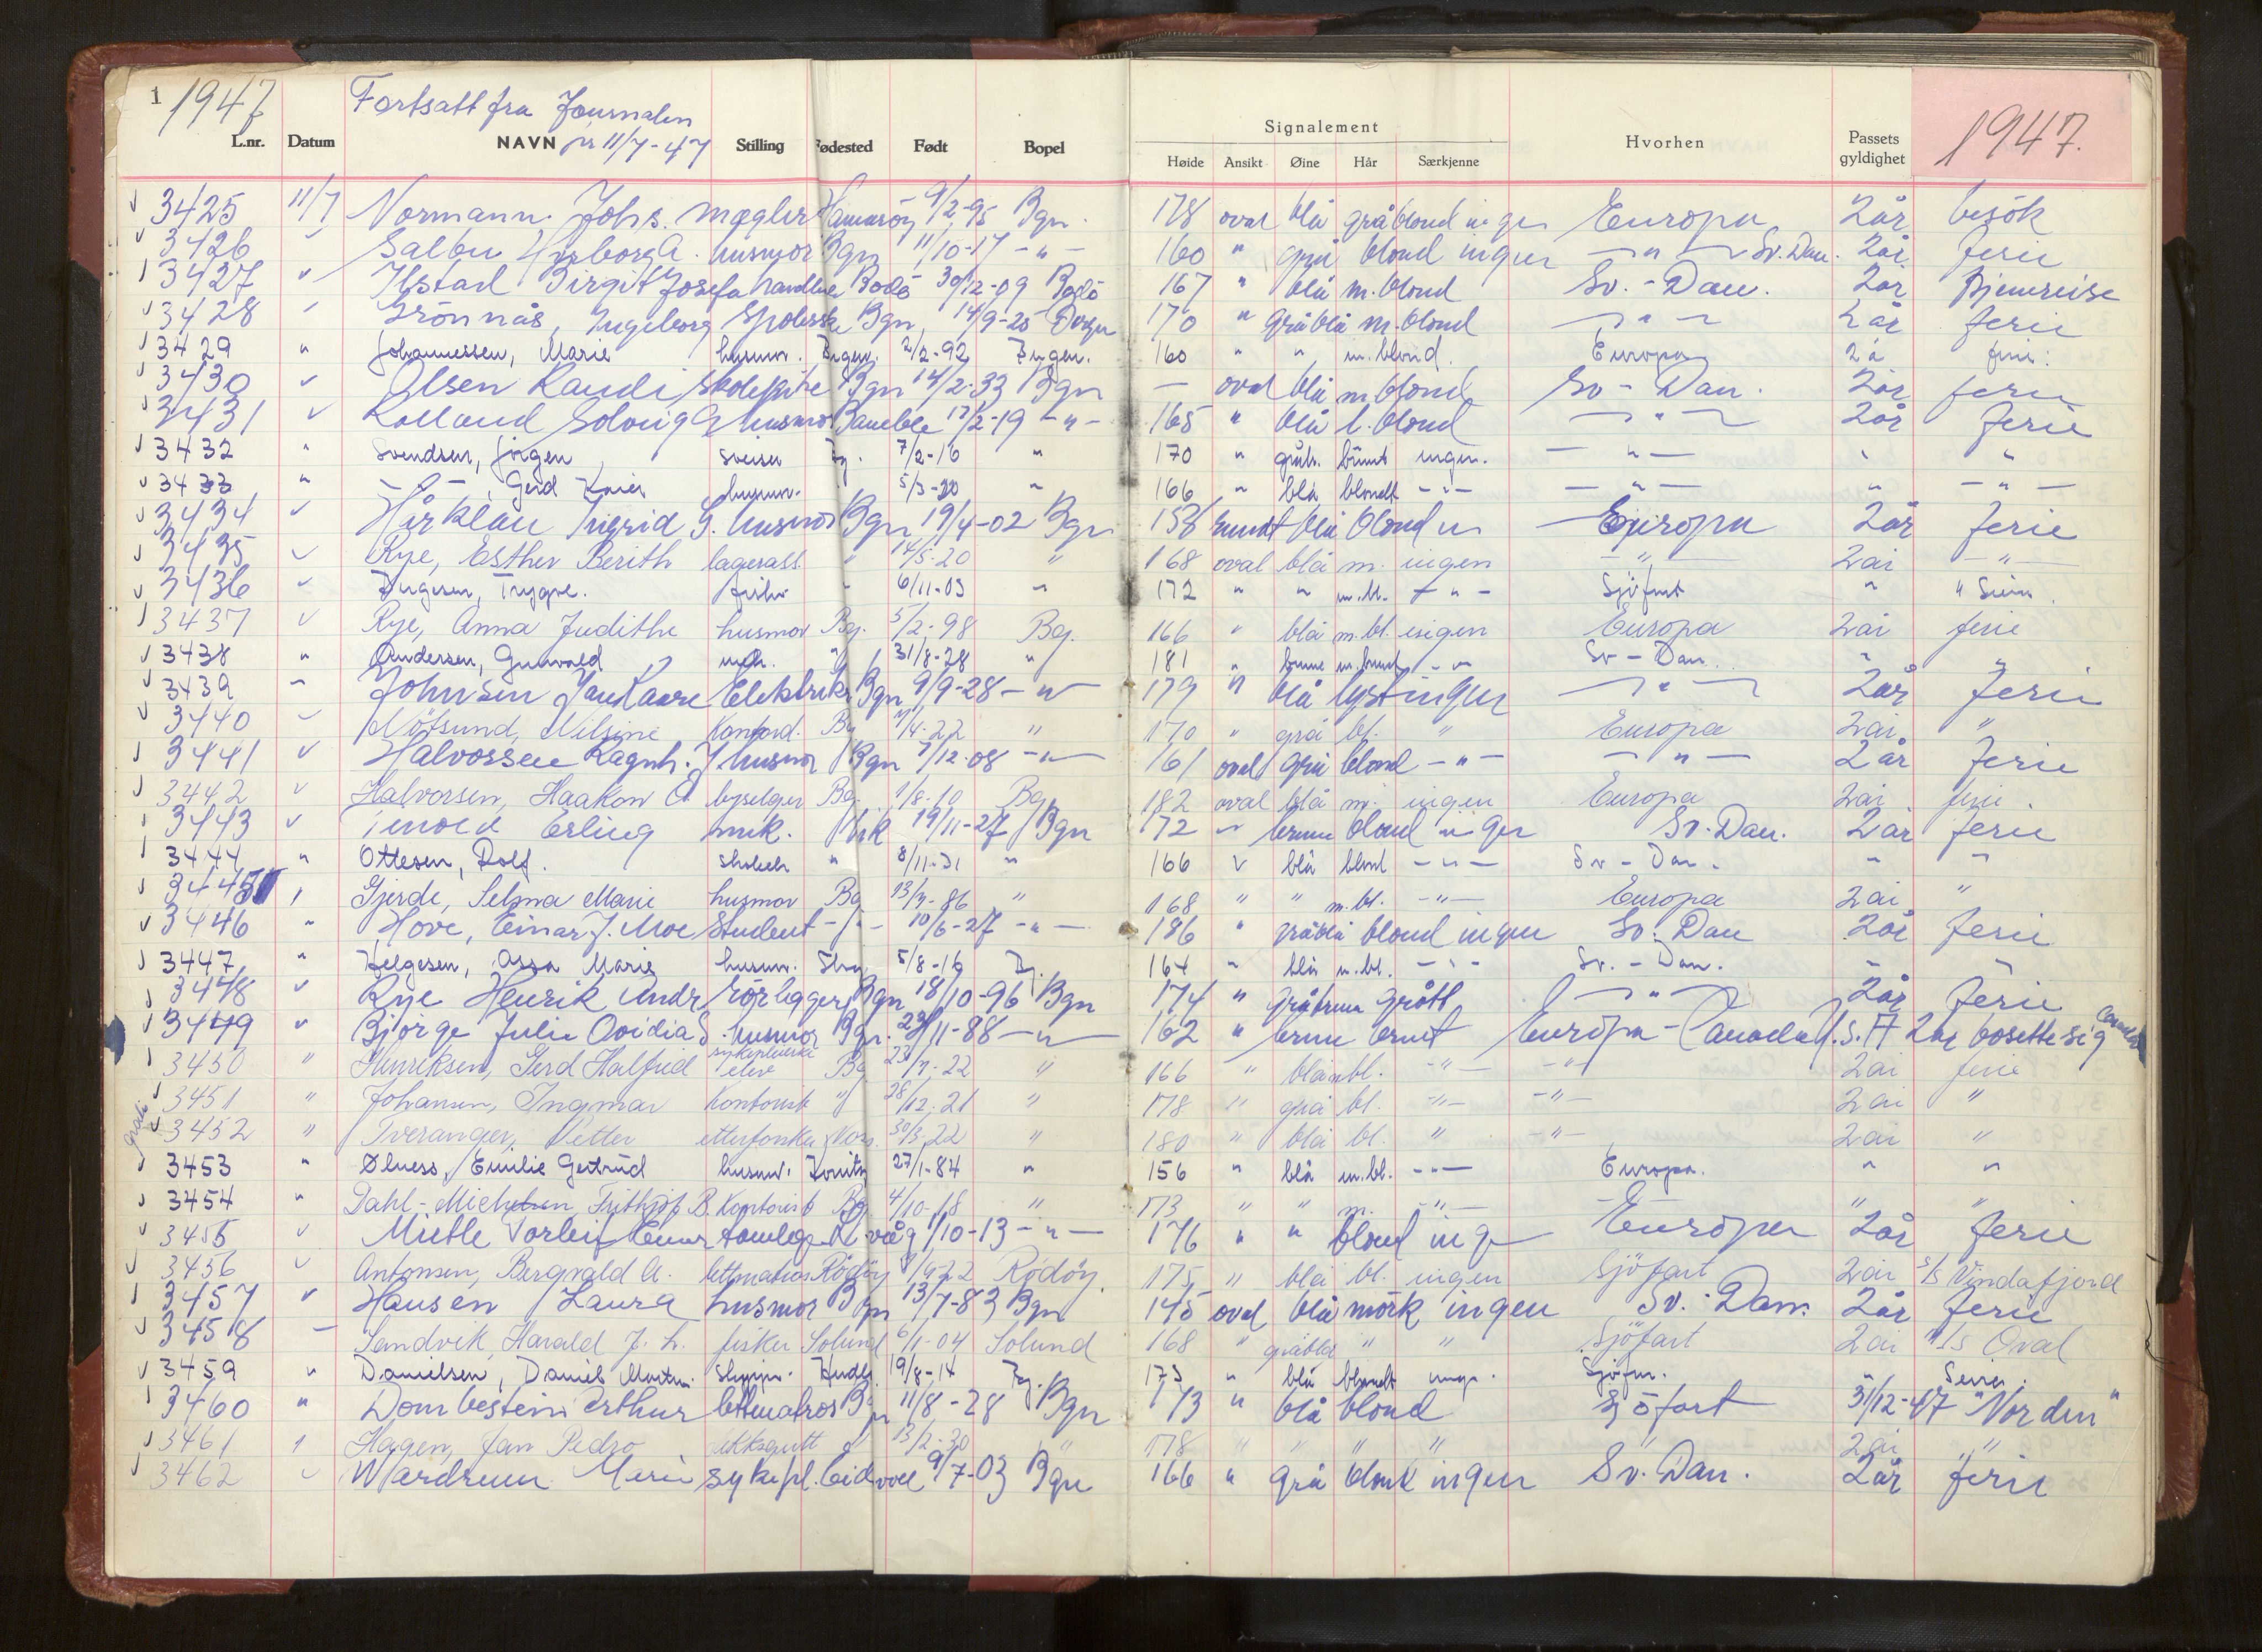 1 1947 Fortsatt fra Journalen
pr 11/7-47
L.nr. Datum NAVN Stilling Fødested Født Bopel
Signalement
Høide Ansikt Øine Hår Særkjenne Hvorhen Passets gyldighet 1947.
3425 11/7 Normann Johs. megler Hamarøy 9/2-95 Bgn. 178 oval blå gråblond ingen Europa 2år besök
3426 " Salbu A. husmor Bgn 11/10-17 -"- 160 " grå blond ingen -"- Sv. Dan. 2år ferie
3427 " Ilstad Birgit Josefa Bodö 30/12-09 Bodö 167 " blå m. blond Sv. - Dan. 2år Hjemreise
3428 " Grönnås, Ingeborg Bgn 14/9-25 170 " gråblå m. blond -"- 2år ferie
3429 " Johannessen, Marie husmor. 2/2-92 160 " " m. blond. Europa 2å ferie.
3430 " Olsen Randi Bgn 14/2-33 Bgn — oval blå m blond Sv - Dan. 2år ferie
3431 " Rolland Solveig husmor Bamble 17/2-19 -"- 165 " blå l. blond -"- 2år ferie
3432 " Svendsen, Jörgen sveiser Bg. 7/2-16 " 170 " ingen. -"- " "
3433 " — " — , Gerd husmor. 5/3-20 " 166 " blå blondt -"- -"- " -"-
3434 " Hårklau Ingrid G. husmor Bgn 19/4-02 Bgn 158 rundt blå blond in Europa 2år ferie
3435 " Rye, Esther Berith lagerass. " 14/5-20 " 168 oval blå m. ingen -"- 2år -"-
3436 " Trygve. 6/11-03 " 172 " " m.bl. -"- Sjöfart "
3437 " Rye, Anna Judithe husmor Bg. 5/2-98 Bg. 166 " blå m. bl. ingen Europa 2år ferie
3438 " Andersen, Gunvald " 31/8-28 " 181 " brune m. brunt -"- Sv - Dan. " "
3439 " Johnsen Jan Kaare Elektriker Bgn 9/9-28 -"- 179 " blå lyst ingen -"- 2år ferie
3440 " Nötsund, Nilsine Kontord. Bg /4-22 " 170 " grå bl. " Europa 2år "
3441 " Halvorsen Ragnh. J husmor Bgn 7/12-08 -"- 161 oval grå blond -"- -"- 2år ferie
3442 " Halvorsen, Haakon A. byselger Bg. 1/8-10 Bg. 182 oval blå m. ingen Europa 2år ferie.
3443 " Tenold Erling mek. Vik 19/11-27 Bgn 172 " brune blond ingen Sv. Dan. 2år ferie
3444 " Ottesen, Rolf. " 8/11-31 " 166 " blå blond -"- Sv - Dan. " "
3445 " Gjerde, Selma Marie husmor Bg 13/7-86 " 168 " " m. bl. -"- Europa 2år "
3446 " Hove, Einar J. Moe Student -"- 10/6-27 -"- 186 " gråblå blond ingen Sv. Dan 2år ferie
3447 " Helgesen, Marie husmor. 5/8-16 Bg. 164 " blå m. bl. -"- Sv. - Dan. " "
3448 " Rye Henrik Andr rörlegger Bgn 18/10-96 Bgn 174 " gråbrune grått -"- 2år ferie
3449 " Bjorge Julie Ovidia S. husmor Bgn. 23/11-88 -"- 162 " brune brunt Europa - Canada U.S.A 2år bosette sig Canada
3450 " Henriksen, Gerd Halfrid sykepleierske elev Bg. 23/7-22 " 166 " blå m bl. -"- -"- 2år ferie
3451 " Johansen, Ingmar Kontorist " 28/12-21 " 178 " grå bl. -"- -"- 2år "
gratis 3452 " Tveranger, Petter etterforsker Voss. 30/3-22 " 180 " blå bl. " -"- 2år "
3453 " Ølness, Emilie Gertrud husmor. 27/1-84 " 156 " blå m. bl. -"- Europa. " "
3454 " Dahl-Michelsen, Frithjof B. Kontorist Bg. 4/10-18 " 173 " " m. -"- -"- " "
3455 " Mietle Torleif 1/10-13 -"- 176 " " blond ing Europa 2år ferie
3456 " Antonsen, Bergvald A. lettmatros Rödöy /4-22 Rödöy 175 " blå bl. ingen Sjöfart 2år s/s Vindafjord
3457 " Hansen Laura husmor Bgn 13/7-83 Bgn 145 oval blå mörk ingen Sv. Dan. 2år ferie
3458 — Sandvik, Harald J. L. fisker Solund 6/1-04 Solund 168 " gråblå " " Sjöfart 2år m/s Oval
3459 " Danielsen, Daniel 19/8-14 Bg. 173 " blå blondt Sjöfar.
3460 " Dombestein Arthur lettmatros Bgn 11/8-28 Bgn 173 " blå blond Sjöfart 31/12-47 "Norden"
3461 " Hagen, Jan Pedro dekksgutt " 13/2-30 " 178 " " " " 2år "
3462 " Wardrum Marie sykepl. Eidsvoll 9/7-03 Bgn 166 " grå blond ingen Sv. Dan. 2år ferie